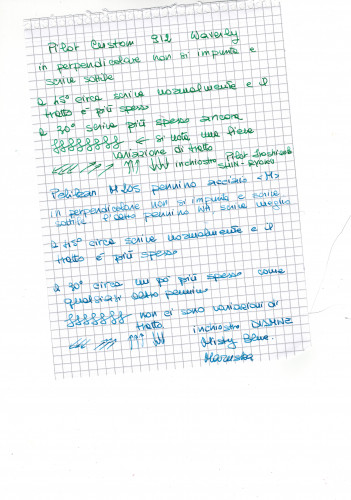 Pilot Custom 912 Waverly
in perpendicolare non si impunta e
scrive sottile
a 45° circa scrive normalmente e il
tratto è più spesso
a 30° scrive più spesso ancora
← si nota una lieve
variazione di tratto
inchiostro Pilot Iroshizuku
SHIN-RYOKU
Pelikan M205 pennino acciaio <M>
in perpendicolare non si impunta e scrive
sottile l'altro pennino scrive meglio
a 45° circa scrive normalmente e il
tratto è più spesso
a 30° circa un po' più spesso come
qualsiasi altro pennino
non ci sono variazioni di
tratto
inchiostro DIAMINE
Misty Blue